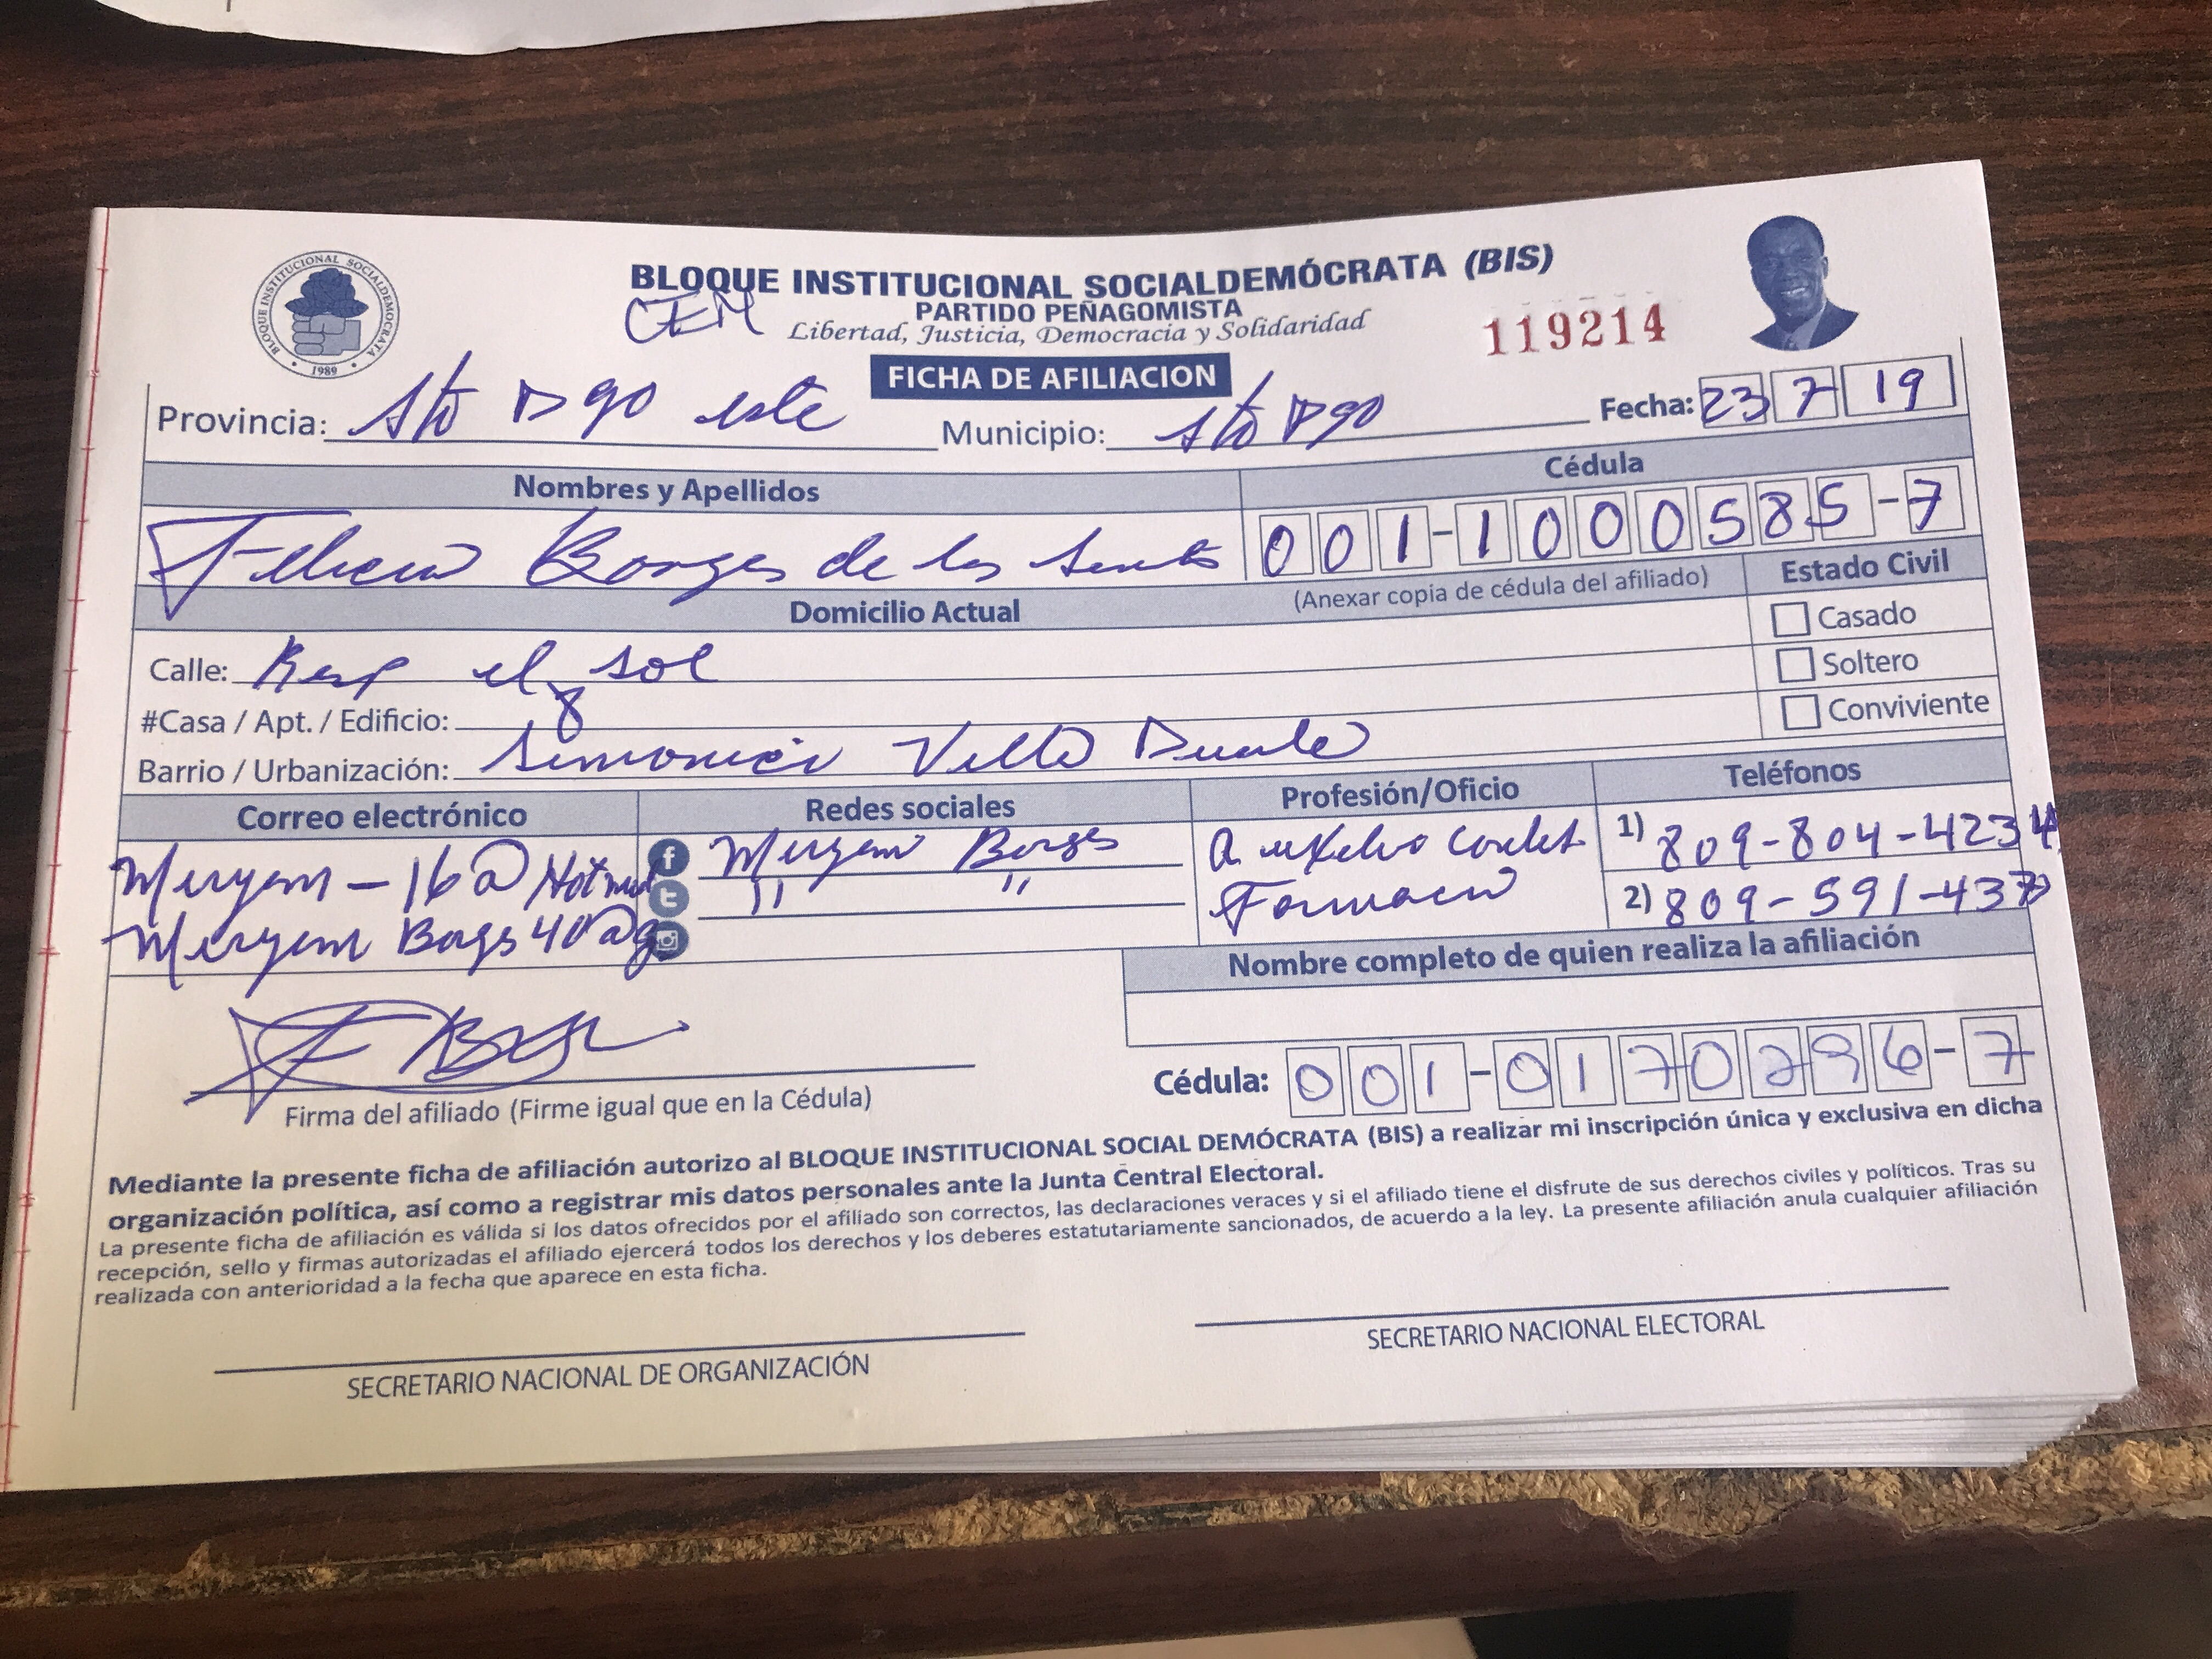 BLOQUE INSTITUCIONAL SOCIALDEMÓCRATA
1989
BLOQUE INSTITUCIONAL SOCIALDEMÓCRATA (BIS)
PARTIDO PEÑAGOMISTA
CEM
Libertad, Justicia, Democracia y Solidaridad
119214
FICHA DE AFILIACION
Provincia: Sto Dgo este Municipio: Sto Dgo Fecha: 23 7 19
Nombres y Apellidos Cédula
Borges de los Santos 001-1000585-7
Domicilio Actual (Anexar copia de cédula del afiliado) Estado Civil
Calle: Resp el sol Casado
#Casa / Apt. / Edificio: 8 Soltero
Barrio / Urbanización: Villa Duarte Conviviente
Correo electrónico Redes sociales Profesión/Oficio Teléfonos
Meryem-16@Hotmail f Meryem Borges 1) 809-804-4234
Meryem Borgs40@g t " " Farmacia 2) 809-591-437
Nombre completo de quien realiza la afiliación
Cédula: 001-0170296-7
Firma del afiliado (Firme igual que en la Cédula)
Mediante la presente ficha de afiliación autorizo al BLOQUE INSTITUCIONAL SOCIAL DEMÓCRATA (BIS) a realizar mi inscripción única y exclusiva en dicha
organización política, así como a registrar mis datos personales ante la Junta Central Electoral.
La presente ficha de afiliación es válida si los datos ofrecidos por el afiliado son correctos, las declaraciones veraces y si el afiliado tiene el disfrute de sus derechos civiles y políticos. Tras su
recepción, sello y firmas autorizadas el afiliado ejercerá todos los derechos y los deberes estatutariamente sancionados, de acuerdo a la ley. La presente afiliación anula cualquier afiliación
realizada con anterioridad a la fecha que aparece en esta ficha.
SECRETARIO NACIONAL DE ORGANIZACIÓN SECRETARIO NACIONAL ELECTORAL